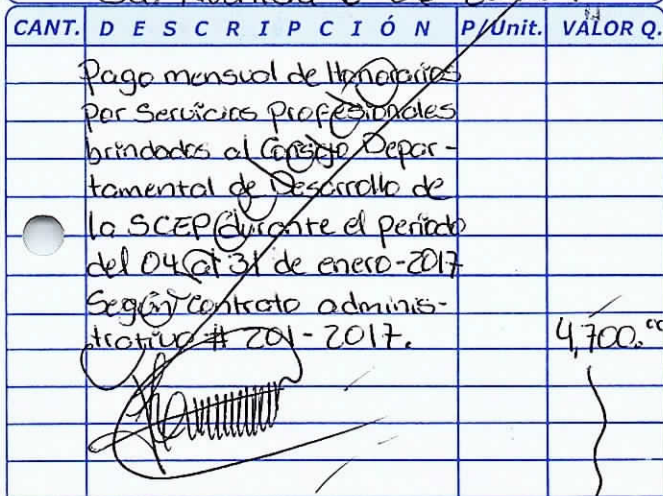 CANT. DESCRIPCIÓN P/Unit. VALOR Q.
Pago mensual de Honorarios
por Servicios Profesionales
brindados al Consejo Depar-
tamental de Desarrollo de
la SCEP durante el periodo
del 04 al 31 de enero-2017
Según contrato adminis-
trativo # 201-2017. 4,700.00